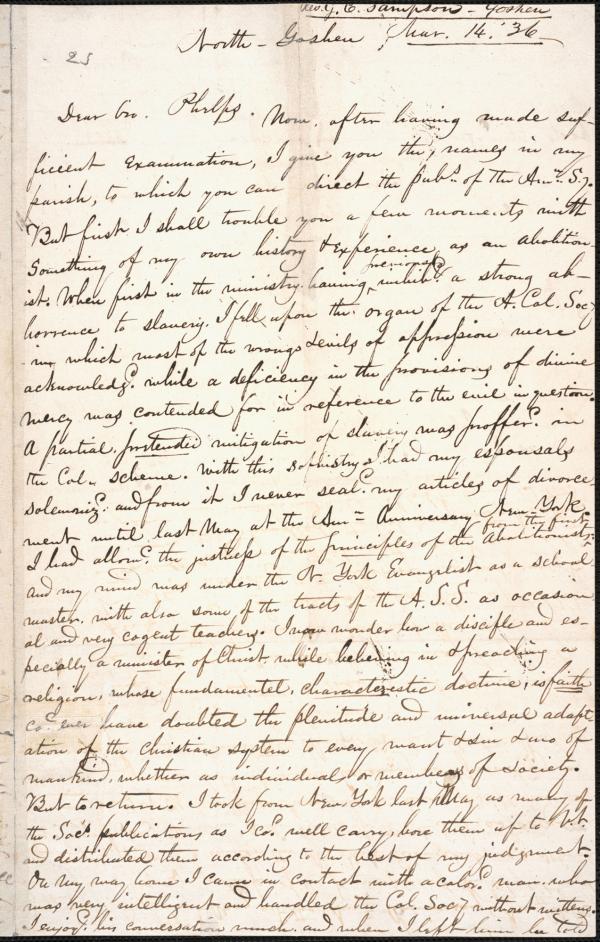 Rev. G. C. Sampson - Goshen
25
North-Goshen, Mar. 14. '36
Dear Bro. Phelps. Now, after having made suf-
ficient examination, I give you the names in my
parish, to which you can direct the pubs. of the Am. S.y.
But first I shall trouble you a few moments with
something of my own history & experience, as an abolition-
ist. When first in the ministry having previously imbib.d a strong ab-
horrence to slavery. I fell upon the organ of the A. Col. Socy
in which most of the wrongs & evils of oppression were
acknowledg.d while a deficiency in the provisions of divine
mercy was contended for in reference to the evil in question.
A partial, pretended mitigation of slavery was proffer.d in
the Col.n scheme. With this sophistry I had my espousals
solemniz.d and from it I never seal.d my articles of divorce-
ment until last May at the Ann.n Anniversary New-York.
I had allow.d the justness of the principles of the Abolitionists from the first
and my mind was under the N. York Evangelist as a school
master, with also some of the tracts of the A.S.S. as occasion
al and very cogent teachers. I now wonder how a disciple and es-
pecially a minister of Christ, while believing in & preaching a
religion, whose fundamental, characterestic doctrine, is faith
co.d ever have doubted the plenitude and universal adapt
ation of the Christian system to every want & sin & wo of
mankind, whether as individual or members of society.
But to return. I took from New York last May as many of
the Soc.s publications as I co.d well carry, bore them up to Vt.
and distributed them according to the best of my judgment.
On my way home I came in contact with a color.d man, who
was very intelligent and handled the Col. Socy without mittens.
I enjoy.d his conversation much, and when I left him he told